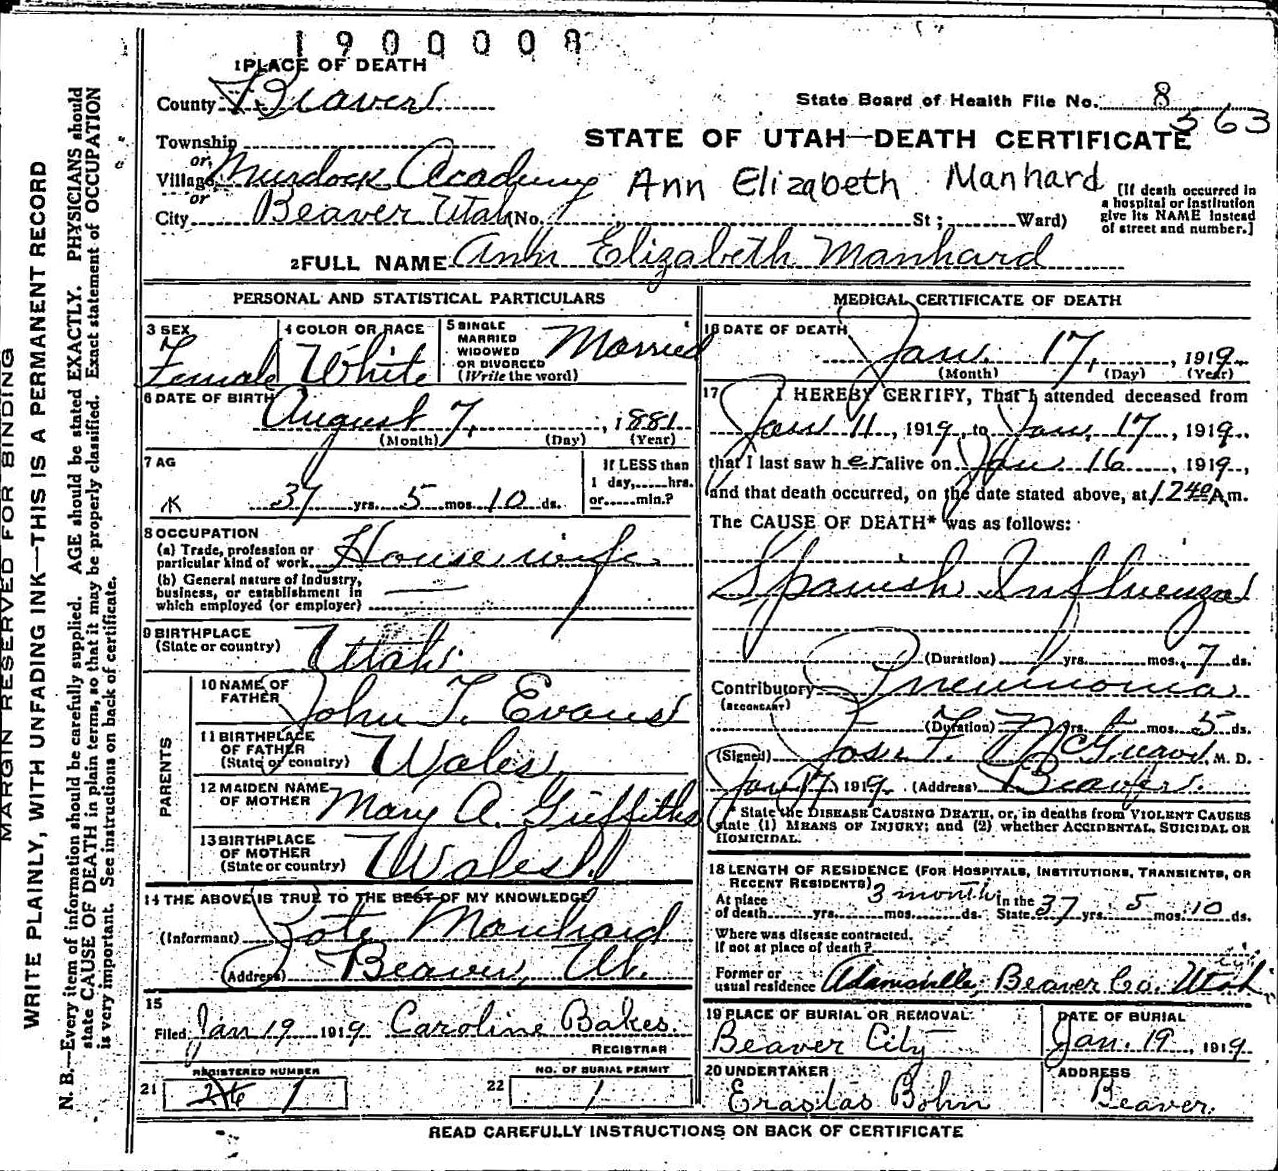 1900008
1 PLACE OF DEATH
County Beaver
State Board of Health File No. 8
563
Township
STATE OF UTAH—DEATH CERTIFICATE
or
Village Murdock Academy Ann Elizabeth Manhard
or
City Beaver Utah (No. St; Ward)
[If death occurred in
a hospital or institution
give its NAME instead
of street and number.]
2 FULL NAME Ann Elizabeth Manhard
PERSONAL AND STATISTICAL PARTICULARS
3 SEX
Female
4 COLOR OR RACE
White
5 SINGLE
MARRIED
WIDOWED
OR DIVORCED
(Write the word)
Married
6 DATE OF BIRTH
August 7, , 1881
(Month) (Day) (Year)
7 AG
37 yrs. 5 mos. 10 ds.
If LESS than
1 day,......hrs.
or......min.?
8 OCCUPATION
(a) Trade, profession or
particular kind of work Housewife
(b) General nature of industry,
business, or establishment in
which employed (or employer)
9 BIRTHPLACE
(State or country) Utah
PARENTS
10 NAME OF
FATHER John T. Evans
11 BIRTHPLACE
OF FATHER
(State or country) Wales
12 MAIDEN NAME
OF MOTHER Mary A. Griffiths
13 BIRTHPLACE
OF MOTHER
(State or country) Wales
14 THE ABOVE IS TRUE TO THE BEST OF MY KNOWLEDGE
(Informant) Manhard
(Address) Beaver, Ut.
15
Filed Jan 19 1919 Caroline Bakes
REGISTRAR
REGISTERED NUMBER
21 1
NO. OF BURIAL PERMIT
22 1
MEDICAL CERTIFICATE OF DEATH
16 DATE OF DEATH
Jan. 17, , 1919
(Month) (Day) (Year)
17 I HEREBY CERTIFY, That I attended deceased from
Jan 11, 1919, to Jan. 17, 1919.,
that I last saw her alive on Jan 16, 1919,
and that death occurred, on the date stated above, at 1240 A.m.
The CAUSE OF DEATH* was as follows:
Spanish Influenza
(Duration) yrs. mos. 7 ds.
Contributory Pneumonia
(SECONDARY)
(Duration) yrs. mos. 5 ds.
(Signed) M. D.
Jan 17, 1919. (Address) Beaver.
* State the DISEASE CAUSING DEATH, or, in deaths from VIOLENT CAUSES
state (1) MEANS OF INJURY; and (2) whether ACCIDENTAL, SUICIDAL OR
HOMICIDAL.
18 LENGTH OF RESIDENCE (FOR HOSPITALS, INSTITUTIONS, TRANSIENTS, OR
RECENT RESIDENTS)
At place 3 months In the
of death yrs. mos. ds. State 37 yrs. 5 mos. 10 ds.
Where was disease contracted.
If not at place of death?
Former or
usual residence Adamsville, Beaver Co. Utah
19 PLACE OF BURIAL OR REMOVAL
Beaver City
DATE OF BURIAL
Jan. 19, 1919
20 UNDERTAKER
Erastas Bohn
ADDRESS
Beaver.
READ CAREFULLY INSTRUCTIONS ON BACK OF CERTIFICATE
MARGIN RESERVED FOR BINDING
WRITE PLAINLY, WITH UNFADING INK—THIS IS A PERMANENT RECORD
N. B.—Every item of information should be carefully supplied. AGE should be stated EXACTLY. PHYSICIANS should
state CAUSE OF DEATH in plain terms, so that it may be properly classified. Exact statement of OCCUPATION
is very important. See instructions on back of certificate.